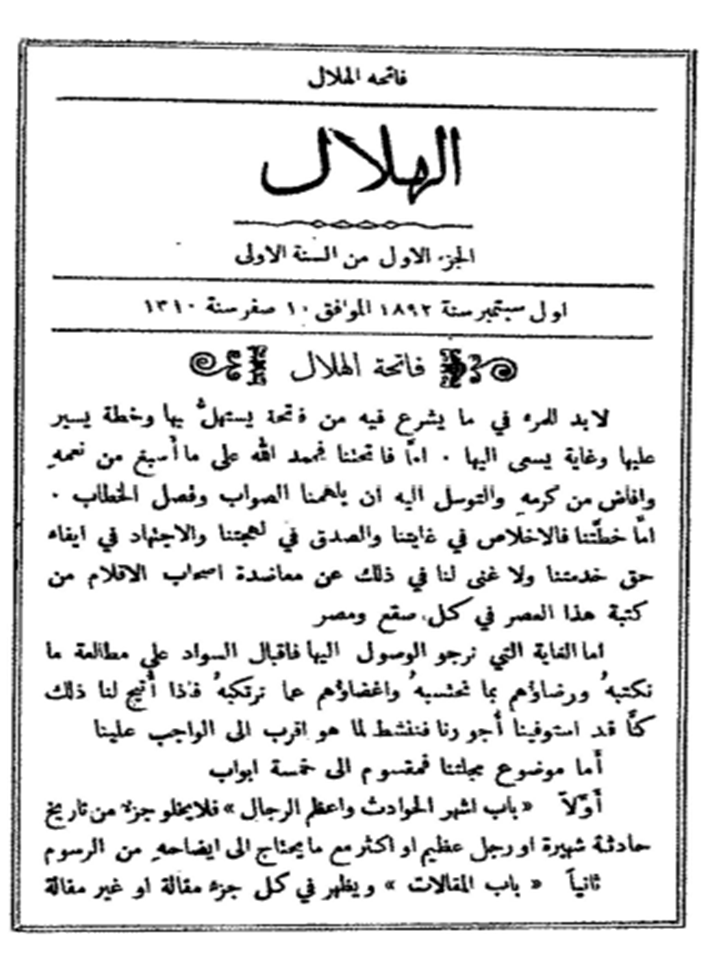 فاتحه الهلال
الهلال
الجزء الاول من السنة الاولى
اول سبتمبر سنة ١٨٩٢ الموافق ١٠ صفر سنة ١٣١٠
فاتحة الهلال
لابد للمرء في ما يشرع فيه من فاتحة يستهلُّ بها وخطة يسير
عليها وغاية يسعى اليها ٠ امَّا فاتحتنا فحمد الله على ما أسبغ من نعمهِ
وافاض من كرمهِ والتوسل اليه ان يلهمنا الصواب وفصل الخطاب ٠
امَّا خطَّتنا فالاخلاص في غايتنا والصدق في لهجتنا والاجتهاد في ايفاء
حق خدمتنا ولا غنى لنا في ذلك عن معاضدة اصحاب الاقلام من
كتبة هذا العصر في كل صقع ومصر
اما الغاية التي نرجو الوصول اليها فاقبال السواد على مطالعة ما
نكتبهُ ورضاؤهم بما نحتسبهُ واغضاؤهم عما نرتكبهُ فاذا أُتيح لنا ذلك
كنَّا قد استوفينا أُجورنا فننشط لما هو اقرب الى الواجب علينا
أما موضوع مجلتنا فمقسوم الى خمسة ابواب
أَوَّلاً «باب اشهر الحوادث واعظم الرجال» فلا يخلو جزءٌ من تاريخ
حادثة شهيرة او رجل عظيم او اكثر مع ما يحتاج الى ايضاحهِ من الرسوم
ثانياً «باب المقالات» ويظهر في كل جزء مقالة او غير مقالة